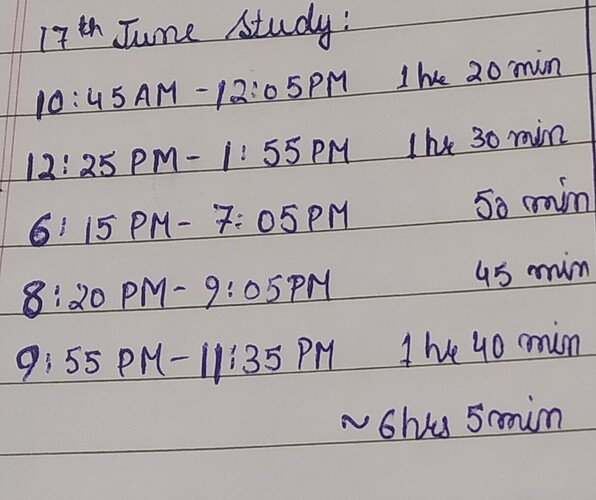 17th June Study:
10:45 AM - 12:05 PM 1 hr 20 min
12:25 PM - 1:55 PM 1 hr 30 min
6:15 PM - 7:05 PM 50 min
8:20 PM - 9:05 PM 45 min
9:55 PM - 11:35 PM 1 hr 40 min
~ 6 hrs 5 min